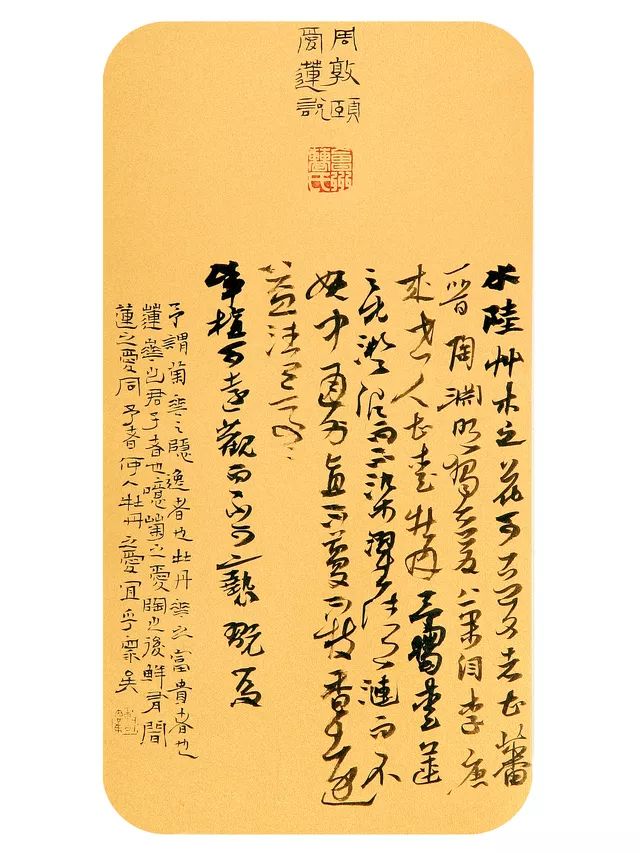 周敦頤
愛蓮說
水陸艸木之花可愛者甚蕃
晉陶淵明獨愛菊自李唐
來世人甚愛牡丹予獨愛蓮
之出淤泥而不染濯清漣而不
妖中通外直不蔓不枝香遠
益清亭亭
淨植可遠觀而不可褻玩焉
予謂菊華之隱逸者也牡丹華之富貴者也
蓮華也君子者也噫菊之愛陶之後鮮有聞
蓮之愛同予者何人牡丹之愛宜乎衆矣